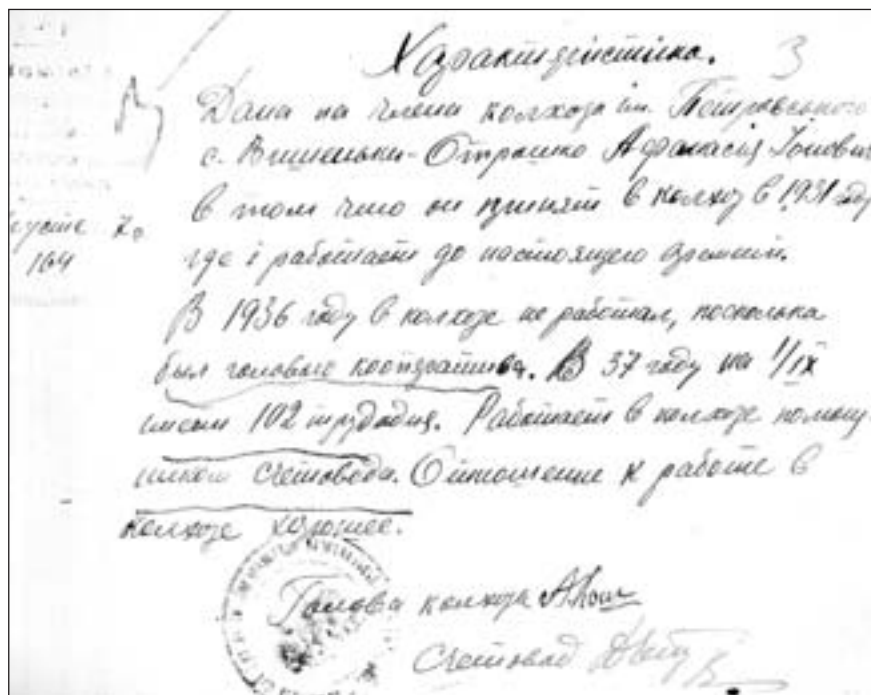 Характерістика. 3
Дана на члена колхоза ім. Петровського
с. Вишеньки-Отрошко Афанасія Іонович
в том что он принят в колхоз в 1931 году
где і работает до настоящего времени.
В 1936 году в колхозе не работал, посколька
был головою кооператива. В 37 году на 1/IX
имеет 102 трудодня. Работает в колхозе помощ
ником счетовода. Отношение к работе в
колхозе хорошее.
Голова колхоза
Счетовод
164